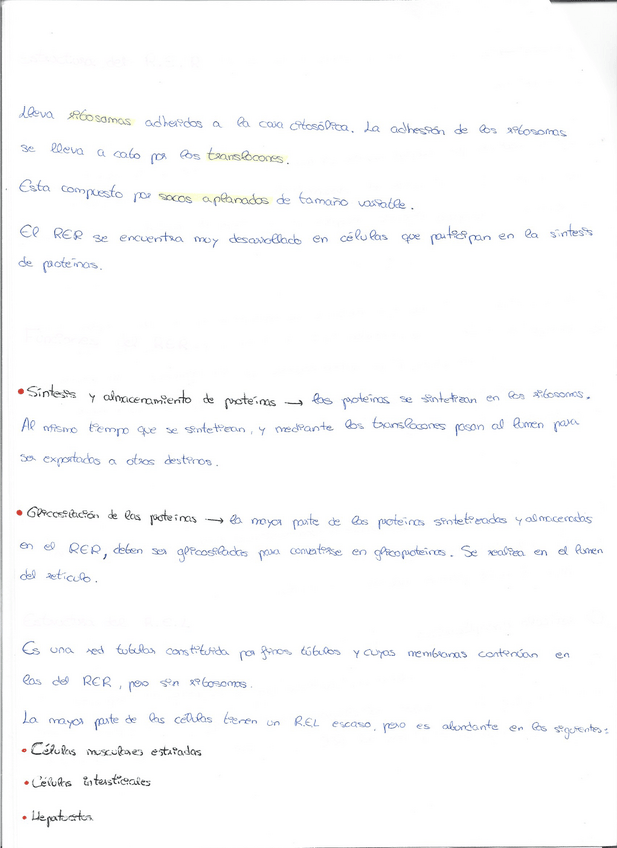 Lleva ribosomas adheridos a la cara citosólica. La adhesión de los ribosomas
se lleva a cabo por los translocones.
Esta compuesto por sacos aplanados de tamaño variable.
El RER se encuentra muy desarrollado en células que participan en la síntesis
de proteínas.
• Síntesis y almacenamiento de proteínas → las proteínas se sintetizan en los ribosomas.
Al mismo tiempo que se sintetizan, y mediante los translocones pasan al lumen para
ser exportadas a otros destinos.
• Glicosilación de las proteínas → la mayor parte de las proteínas sintetizadas y almacenadas
en el RER, deben ser glicosiladas para convertirse en glicoproteínas. Se realiza en el lumen
del retículo.
Es una red tubular constituida por finos túbulos y cuyas membranas continúan en
las del RER, pero sin ribosomas.
La mayor parte de las células tienen un REL escaso, pero es abundante en las siguientes:
• Células musculares estriadas
• Células intersticiales
• Hepatocitos